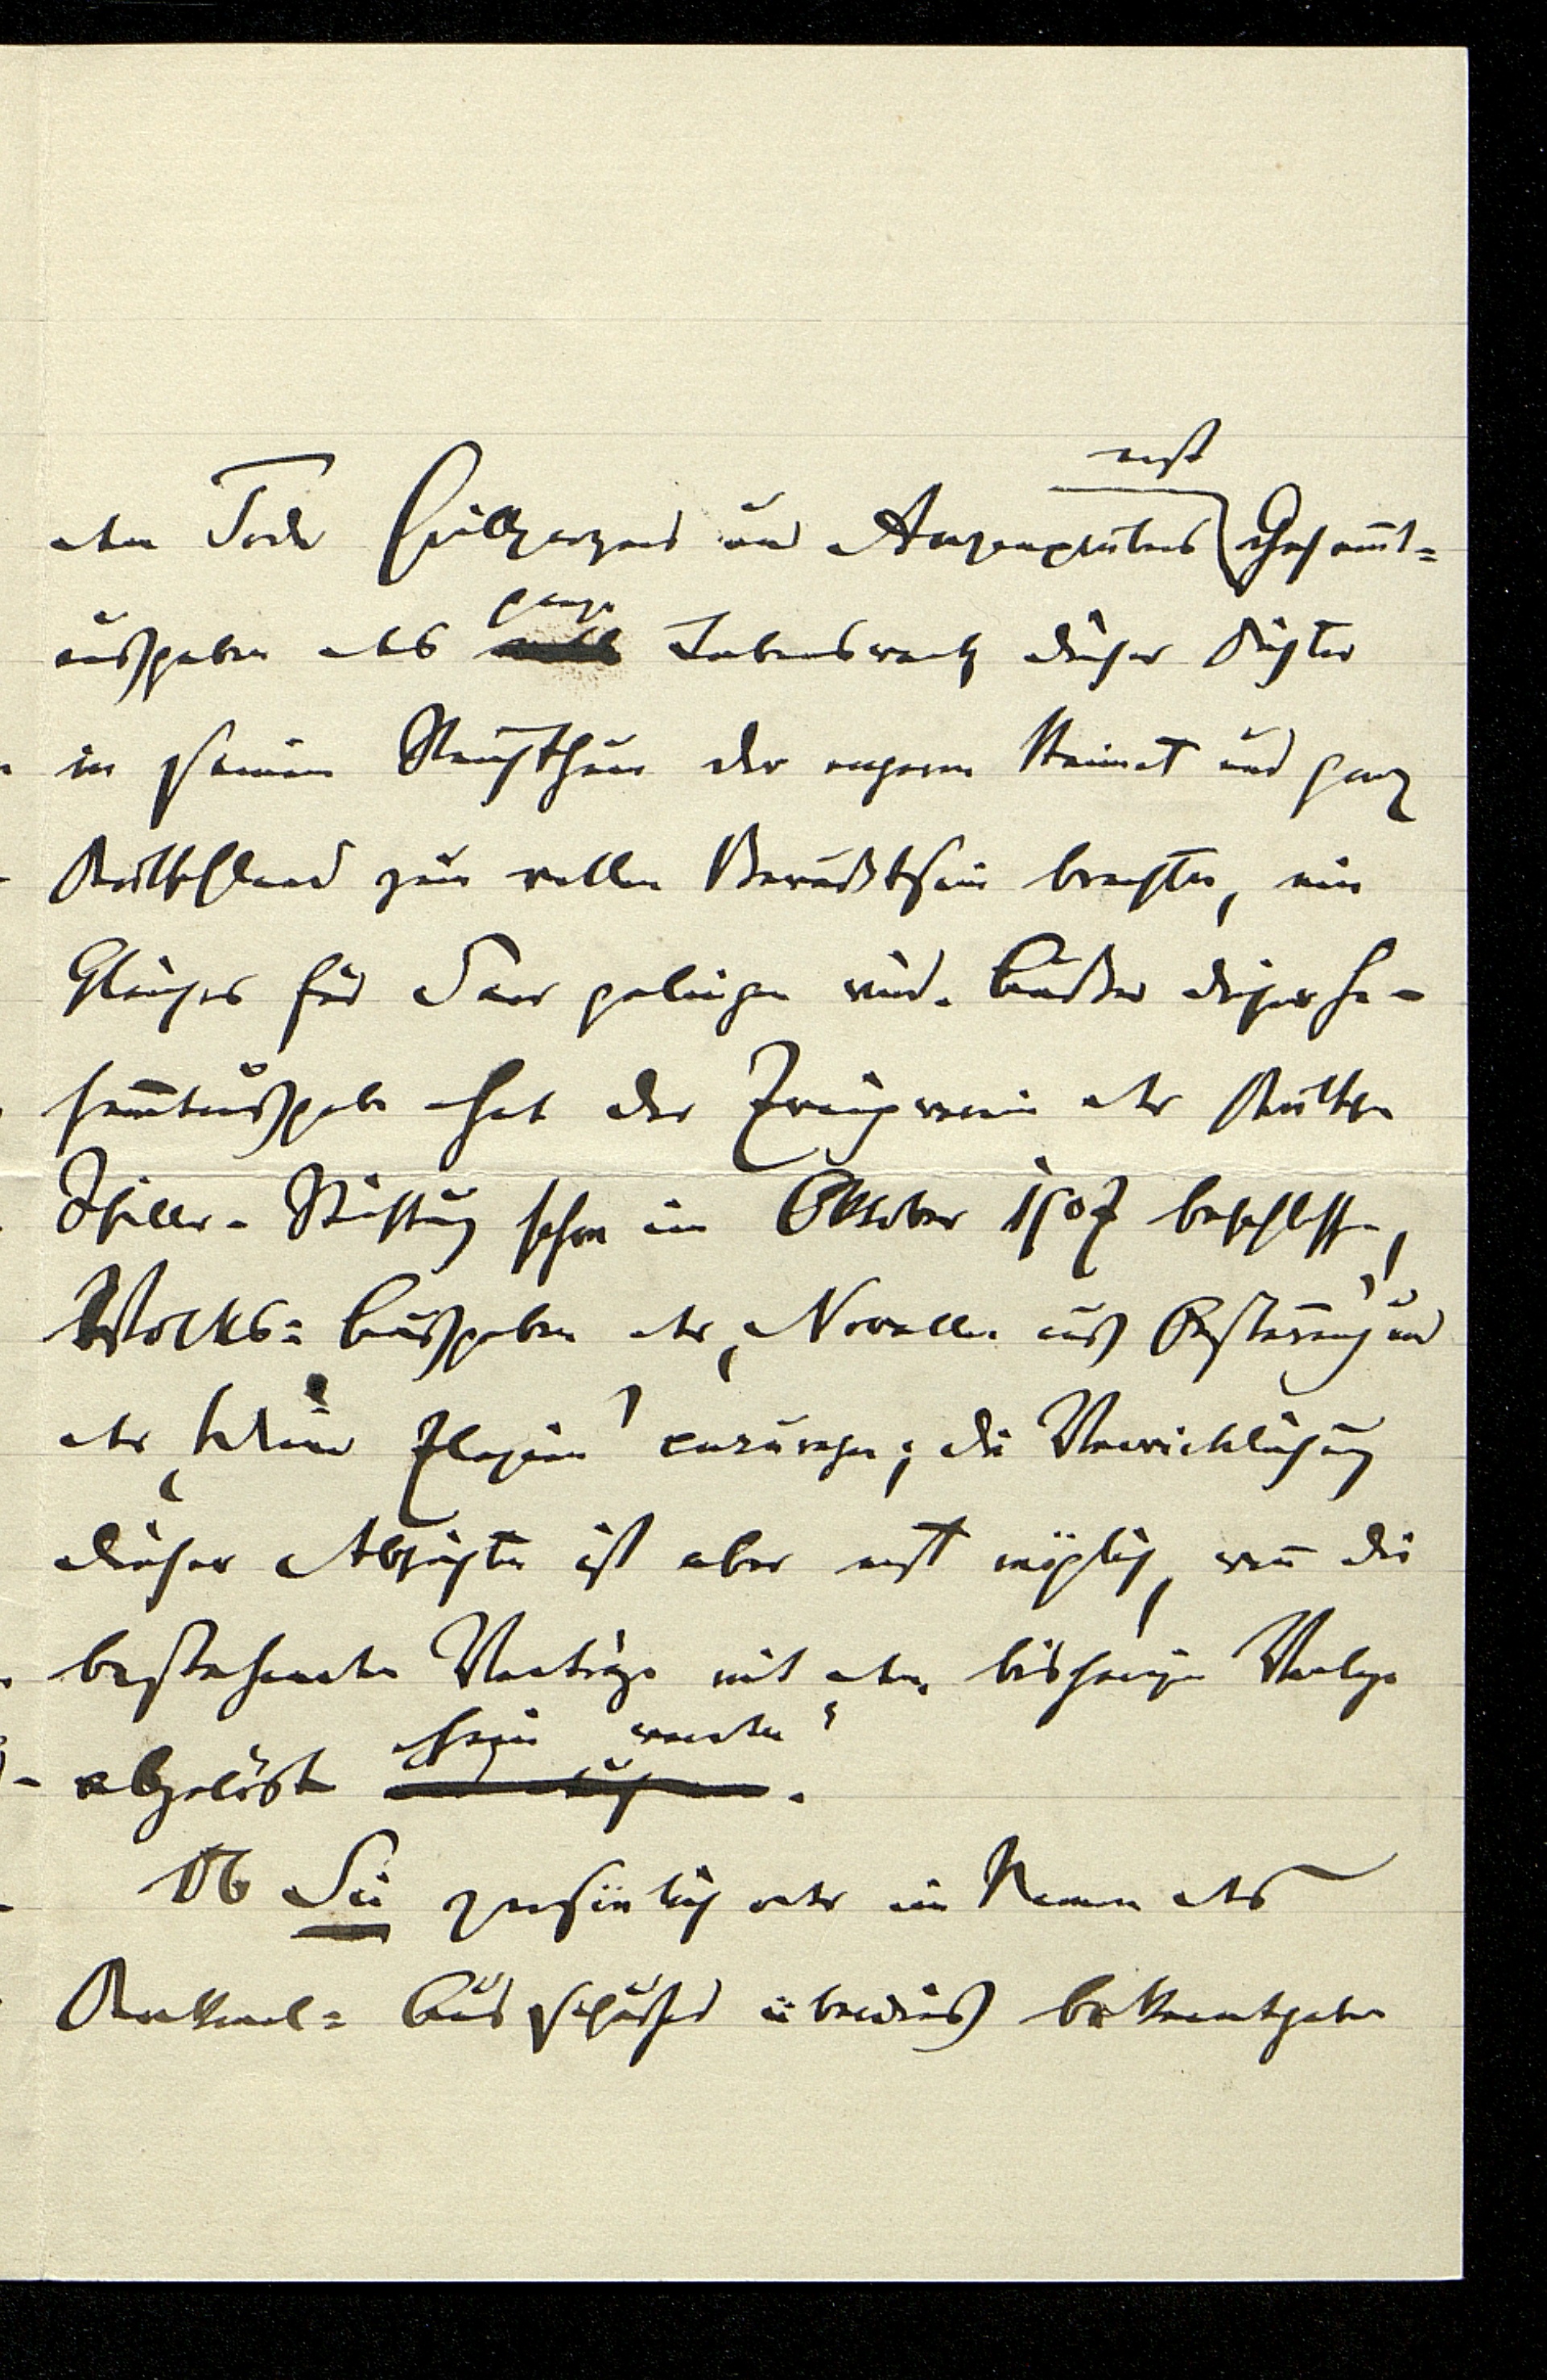 erst
dem Tode Grillparzers und Anzengrubers Gesam̅t=
ausgaben das ganze Lebenswerk dieser Dichter
in seinem Reichthum der engeren Heimat und ganz
Deutschland zum vollen Bewußtsein brachten, ein
Gleiches für Saar gelingen wird. Außer dieser Ge-
sam̅tausgabe hat der Zweigverein der Deutschen
Schiller-Stiftung schon im Oktober 1907 beschlossen,
Volks=Ausgaben der „Novellen aus Österreich“ und
der „Wiener Elegien“ anzuregen; die Verwirklichung
dieser Absichten ist aber erst möglich, wen̅ die
bestehenden Verträge mit dem bisherigen Verleger
abgelöst sein werden.
Ob Sie persönlich oder im Namen des
Denkmal=Ausschusses überdies bekanntgeben